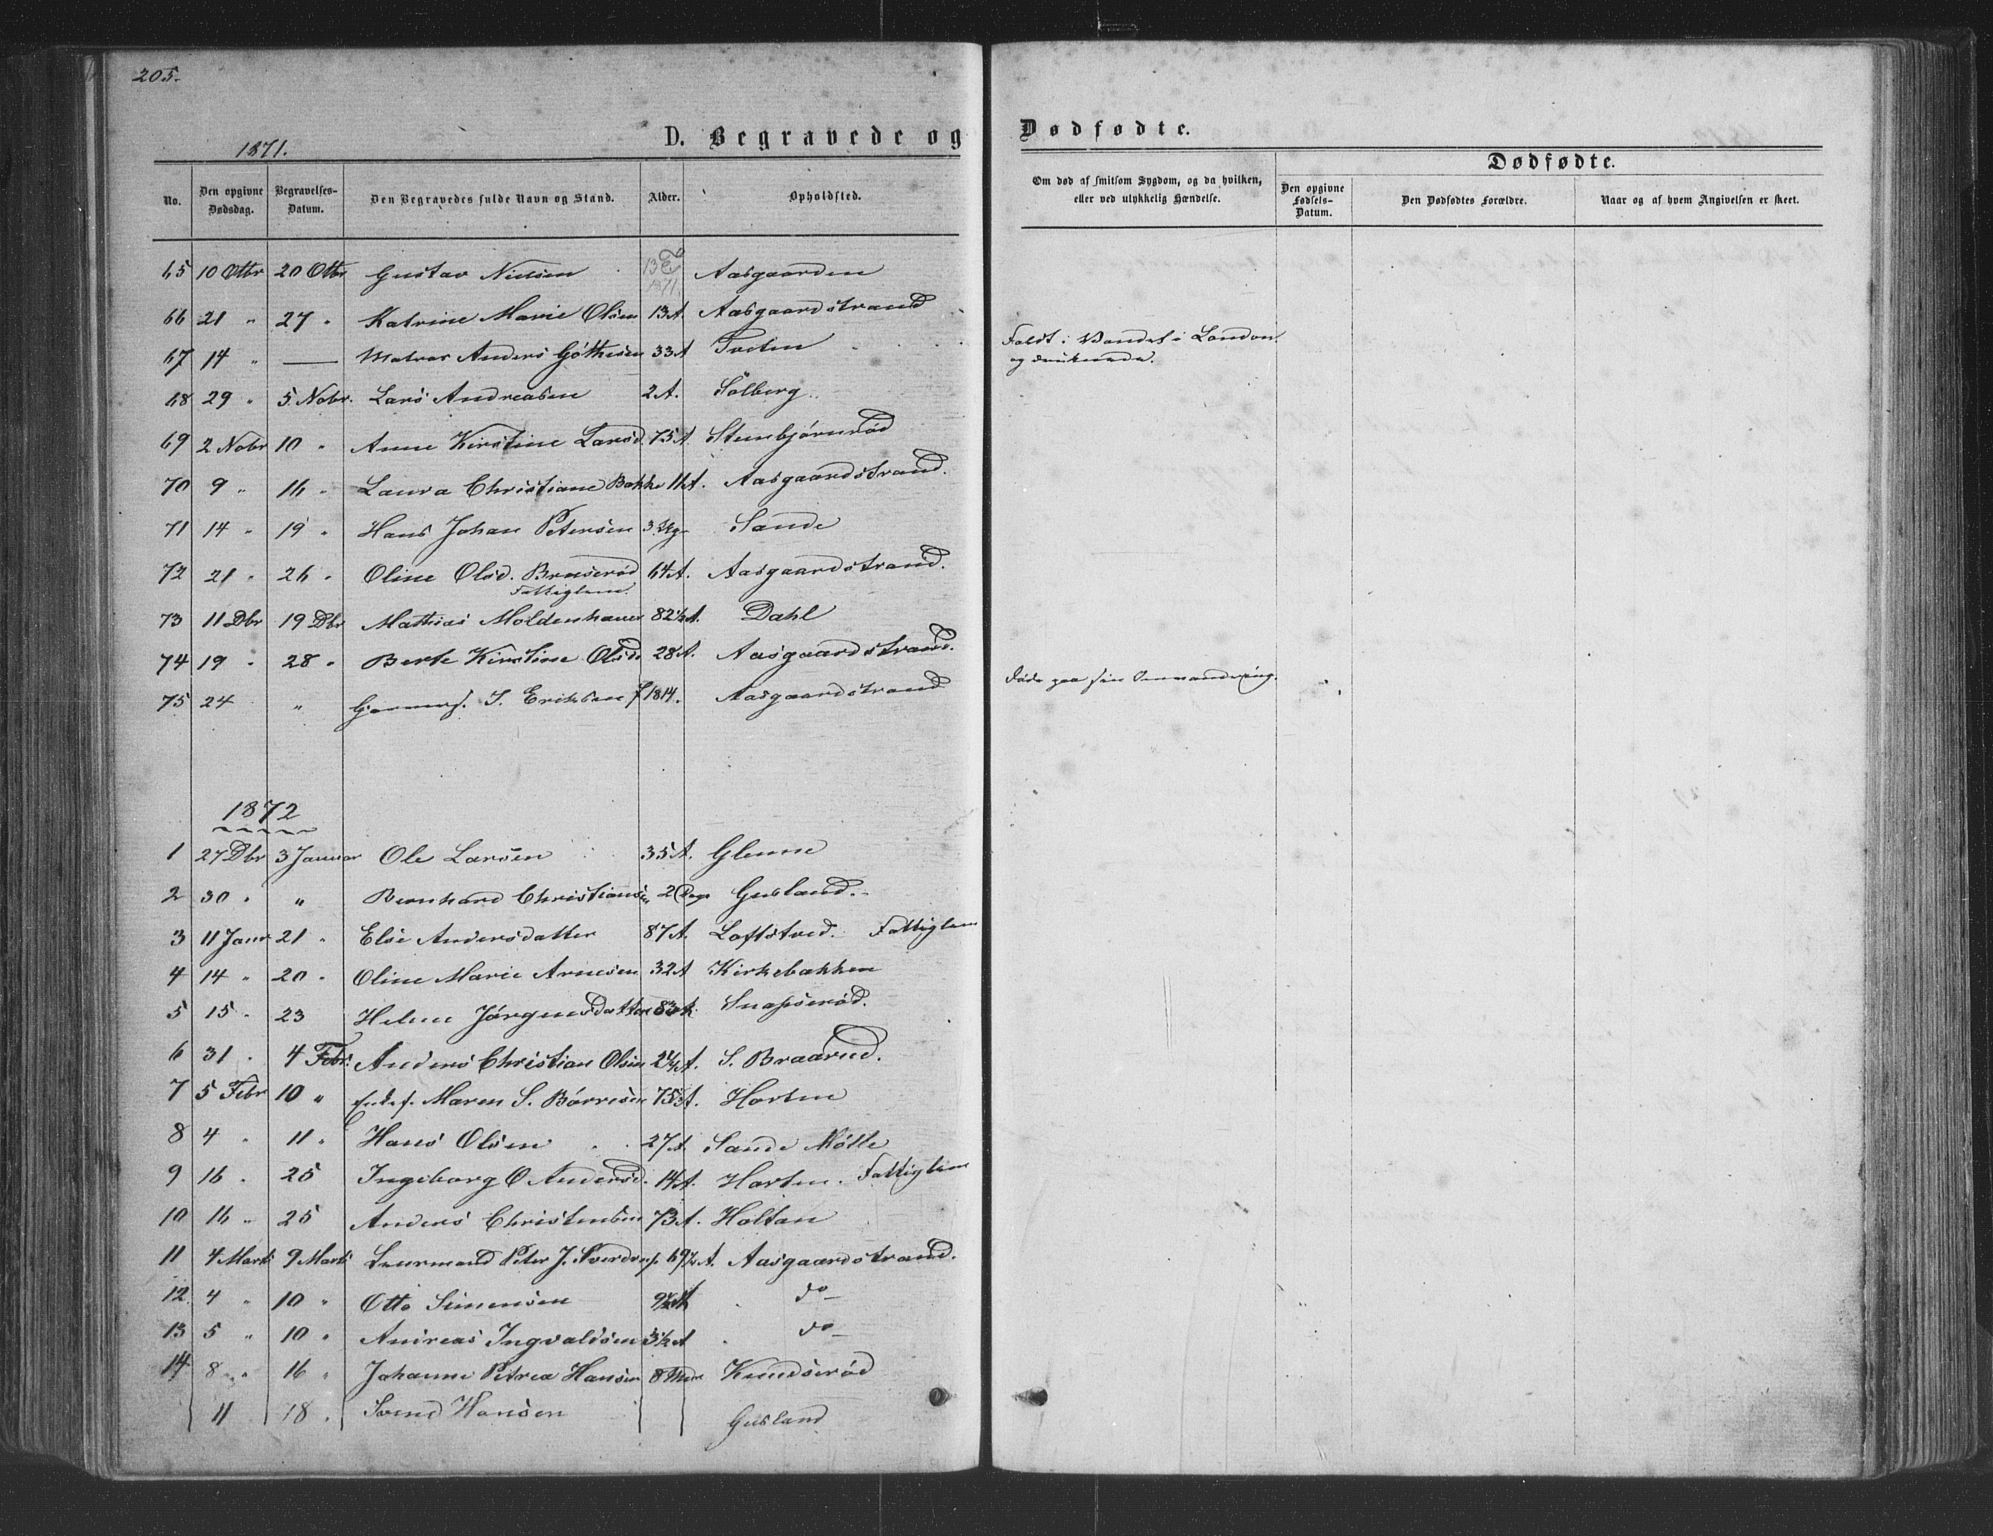 205.
D. Begravede og Dødfødte.
1871.
Dødfødte.
No. Den opgivne Dødsdag. Begravelses-Datum. Den Begravedes fulde Navn og Stand. Alder. Opholdsted. Om død af smitsom Sygdom, og da hvilken, eller ved ulykkelig Hændelse. Den opgivne Fødsels-Datum. Den Dødfødtes Forældre. Naar og af hvem Angivelsen er skeet.
65 10 Otbr 20 Otbr Gustav Nielsen Aasgaarden
66 21 " 27 " Katrine Marie Olsen 13 A. Aasgaardstrand
67 14 " — Matros Anders Góthesen 33 A Tveten Faldt i Vandet i London
og druknede.
68 29 " 5 Nobr. Lars Andreasen 2 A. Solberg
69 2 Nobr 10 " Anne Kirstine Larsd. 75 A. Stenbjórnród
70 9 " 16 " Laura Christiane Bakke 11 A. Aasgaardstrand.
71 14 " 19 " Hans Johan Petersen 3 Ug. Sande
72 21 " 26 " Oline Olsd. Bruserød 64 A. Aasgaardstrand.
Fattiglem.
73 11 Dbr 19 Dbr Mathias Moldenhauer 82 1/2 A. Dahl
74 19 " 28 " Berte Kirstine Olsdr 28 A. Aasgaardstrand.
75 24 " Garmers. S. Eriksen f 1814. Aasgaardstrand Døde paa sin
1872
1 27 Dbr 3 Januar Ole Larsen 35 A. Glenne
2 30 " " Bernhard Christiansen 2 Dage Gusland.
3 11 Janr 21 " Else Andersdatter 87 A. Loftstved. Fattiglem
4 14 " 20 " Oline Marie Arnesen 32 A Kirkebakken
5 15 " 23 Helene Jørgensdatter 83 A. Snapserød.
6 31 " 4 Febr. Anders Christian Olsen 2 1/4 A. S. Braarud.
7 5 Febr 10 " Enkef. Maren S. Børresen 75 A. Horten
8 4 " 11 " Hans Olsen 27 A. Sande Mølle
9 16 " 25 Ingeborg O Andersd. 14 A. Horten. Fattiglem
10 16 " 25 Anders Christensen 73 A. Holtan
11 4 Marts 9 Marts Styrmand Peter J. Sverdrup 69 1/2 A. Aasgaardstrand.
12 4 " 10 " Otto Simensen 9 1/2 A do
13 5 " 10 " Andreas Ingvaldsen 3 1/2 A do
14 8 " 16 " Johanne Petrea Hansen 8 Mdr Knudserød
11 18 " Svend Hansen Gusland